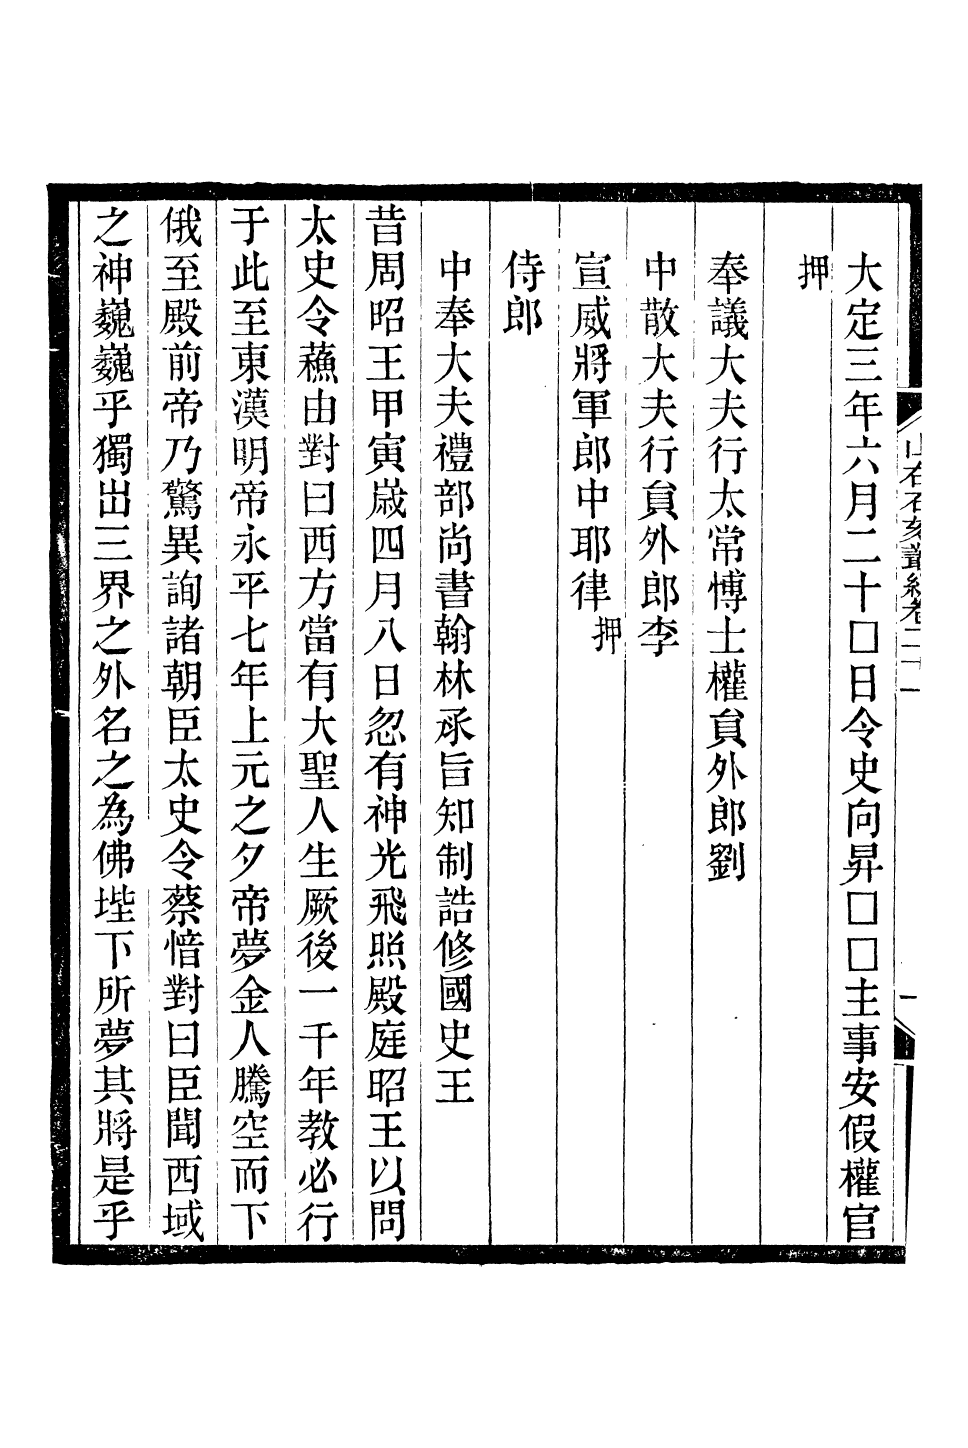 大定三年六月二十□日令史向昇□□主事安假權官
押
奉議大夫行太常博士權貟外郎劉
中散大夫行貟外郎李
宣威將軍郎中耶律押
侍郎
中奉大夫禮部尚書翰林承旨知制誥修國史王
昔周昭王甲寅歲四月八日忽有神光飛照殿庭昭王以問
太史令蘓由對曰西方當有大聖人生厥後一千年教必行
于此至東漢明帝永平七年上元之夕帝夢金人騰空而下
俄至殿前帝乃驚異詢諸朝臣太史令蔡愔對曰臣聞西域
之神巍巍乎獨出三界之外名之為佛陛下所夢其將是乎
山右石刻叢編卷二十一
一